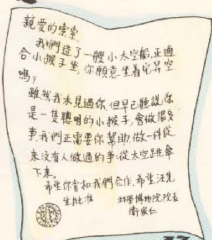 親愛的索索
我們造了一艘小太空船,正適
合小猴子坐,你願意坐着它昇空
嗎?
雖然我未見過你,但早已聽說你
是一隻聰明的小猴子,會做很多
事,我們正需要你幫助,做一件從
來没有人做過的事:從太空跳傘
下來。
希望你肯和我們合作,希望汪先
生批准
科學博物院院長